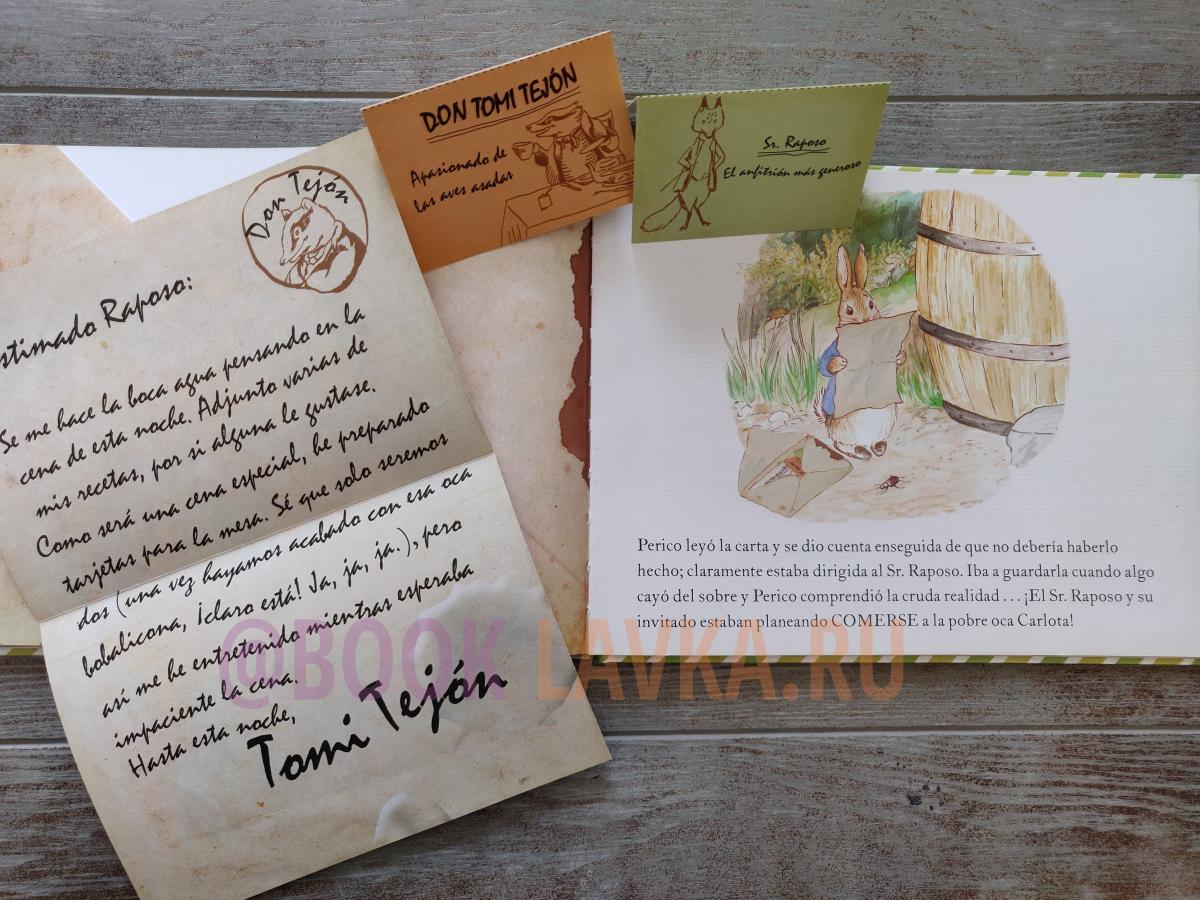 Don Tejón
stimado Raposo:
Se me hace la boca agua pensando en la
cena de esta noche. Adjunto varias de
mis recetas, por si alguna le gustase.
Como será una cena especial, he preparado
tarjetas para la mesa. Sé que solo seremos
dos (una vez hayamos acabado con esa oca
bobalicona, ¡claro está! Ja, ja, ja.), pero
así me he entretenido mientras esperaba
impaciente la cena.
Hasta esta noche,
Tomi Tejón
DON TOMI TEJÓN
Apasionado de
las aves asadas
Sr. Raposo
El anfitrión más generoso
Perico leyó la carta y se dio cuenta enseguida de que no debería haberlo
hecho; claramente estaba dirigida al Sr. Raposo. Iba a guardarla cuando algo
cayó del sobre y Perico comprendió la cruda realidad ... ¡El Sr. Raposo y su
invitado estaban planeando COMERSE a la pobre oca Carlota!
@BOOK LAVKA.RU